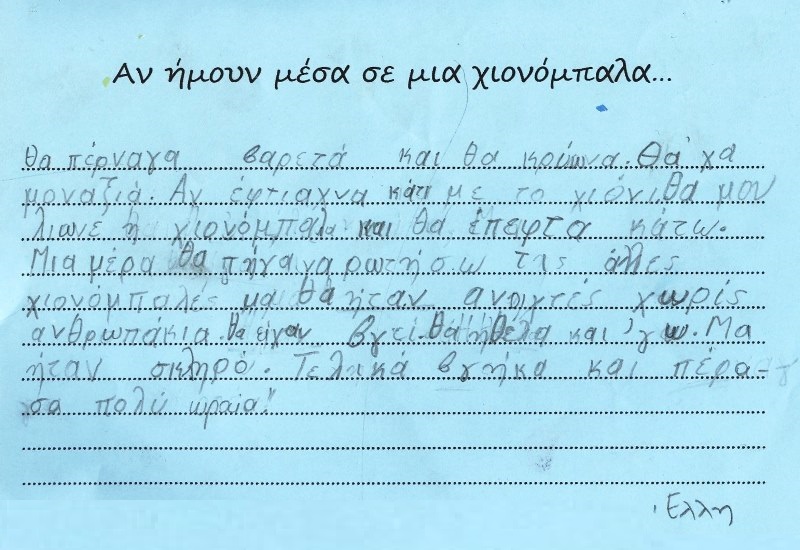 Αν ήμουν μέσα σε μια χιονόμπαλα...
θα πέρναγα βαρετά και θα κρύωνα. Θα 'χα
μοναξιά. Αν έφτιαχνα κάτι με το χιόνι θα μου
λιωνε η χιονόμπαλα και θα έπεφτα κάτω.
Μια μέρα θα πήγαινα ρωτήσω τις άλλες
χιονόμπαλες μα θα ήταν ανοιχτές χωρίς
ανθρωπάκια. θα είχαν βγεί. θα ήθελα και 'γω. Μα
ήταν σκληρό. Τελικά βγήκα και πέρα-
σα πολύ ωραία!
Έλλη